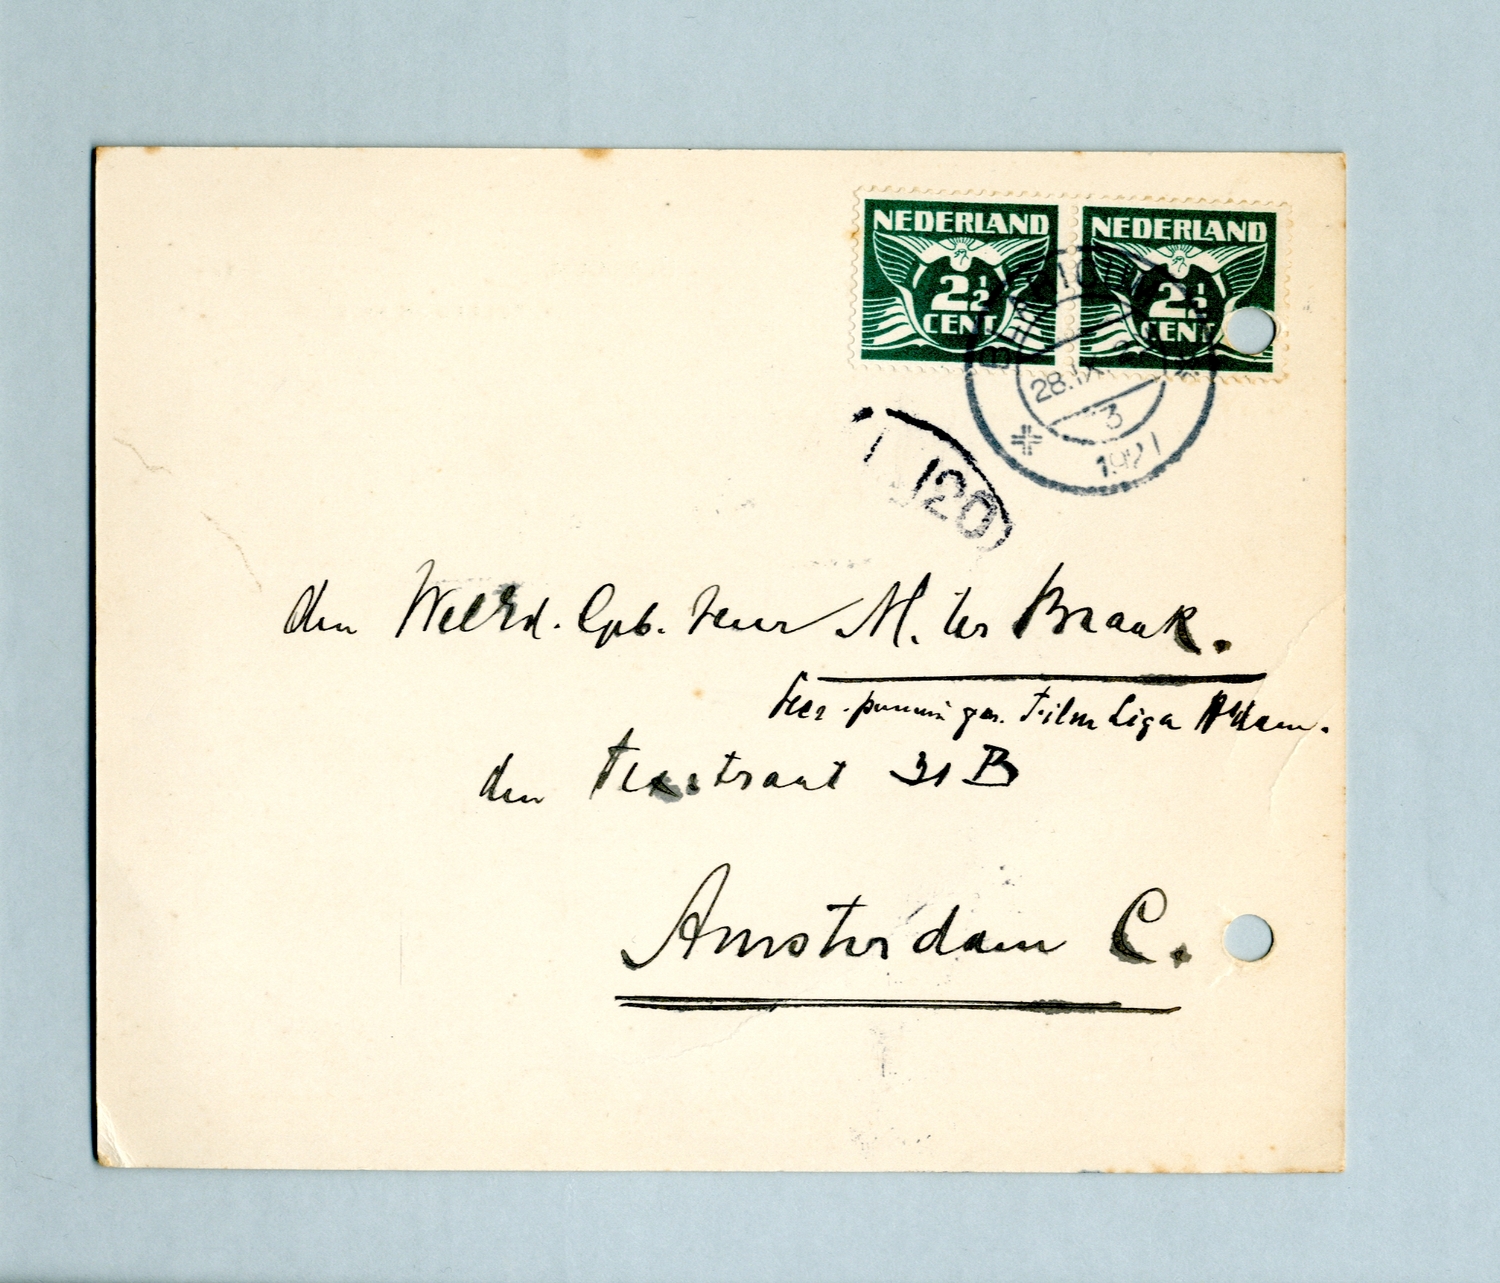 NEDERLAND NEDERLAND
2½ 2½
CENT CENT
28.IX
3
1927
120
den WelEd. Geb. Heer M. ter Braak.
Secr. penningm. Film Liga A'dam.
den Texstraat 31 B
Amsterdam C.